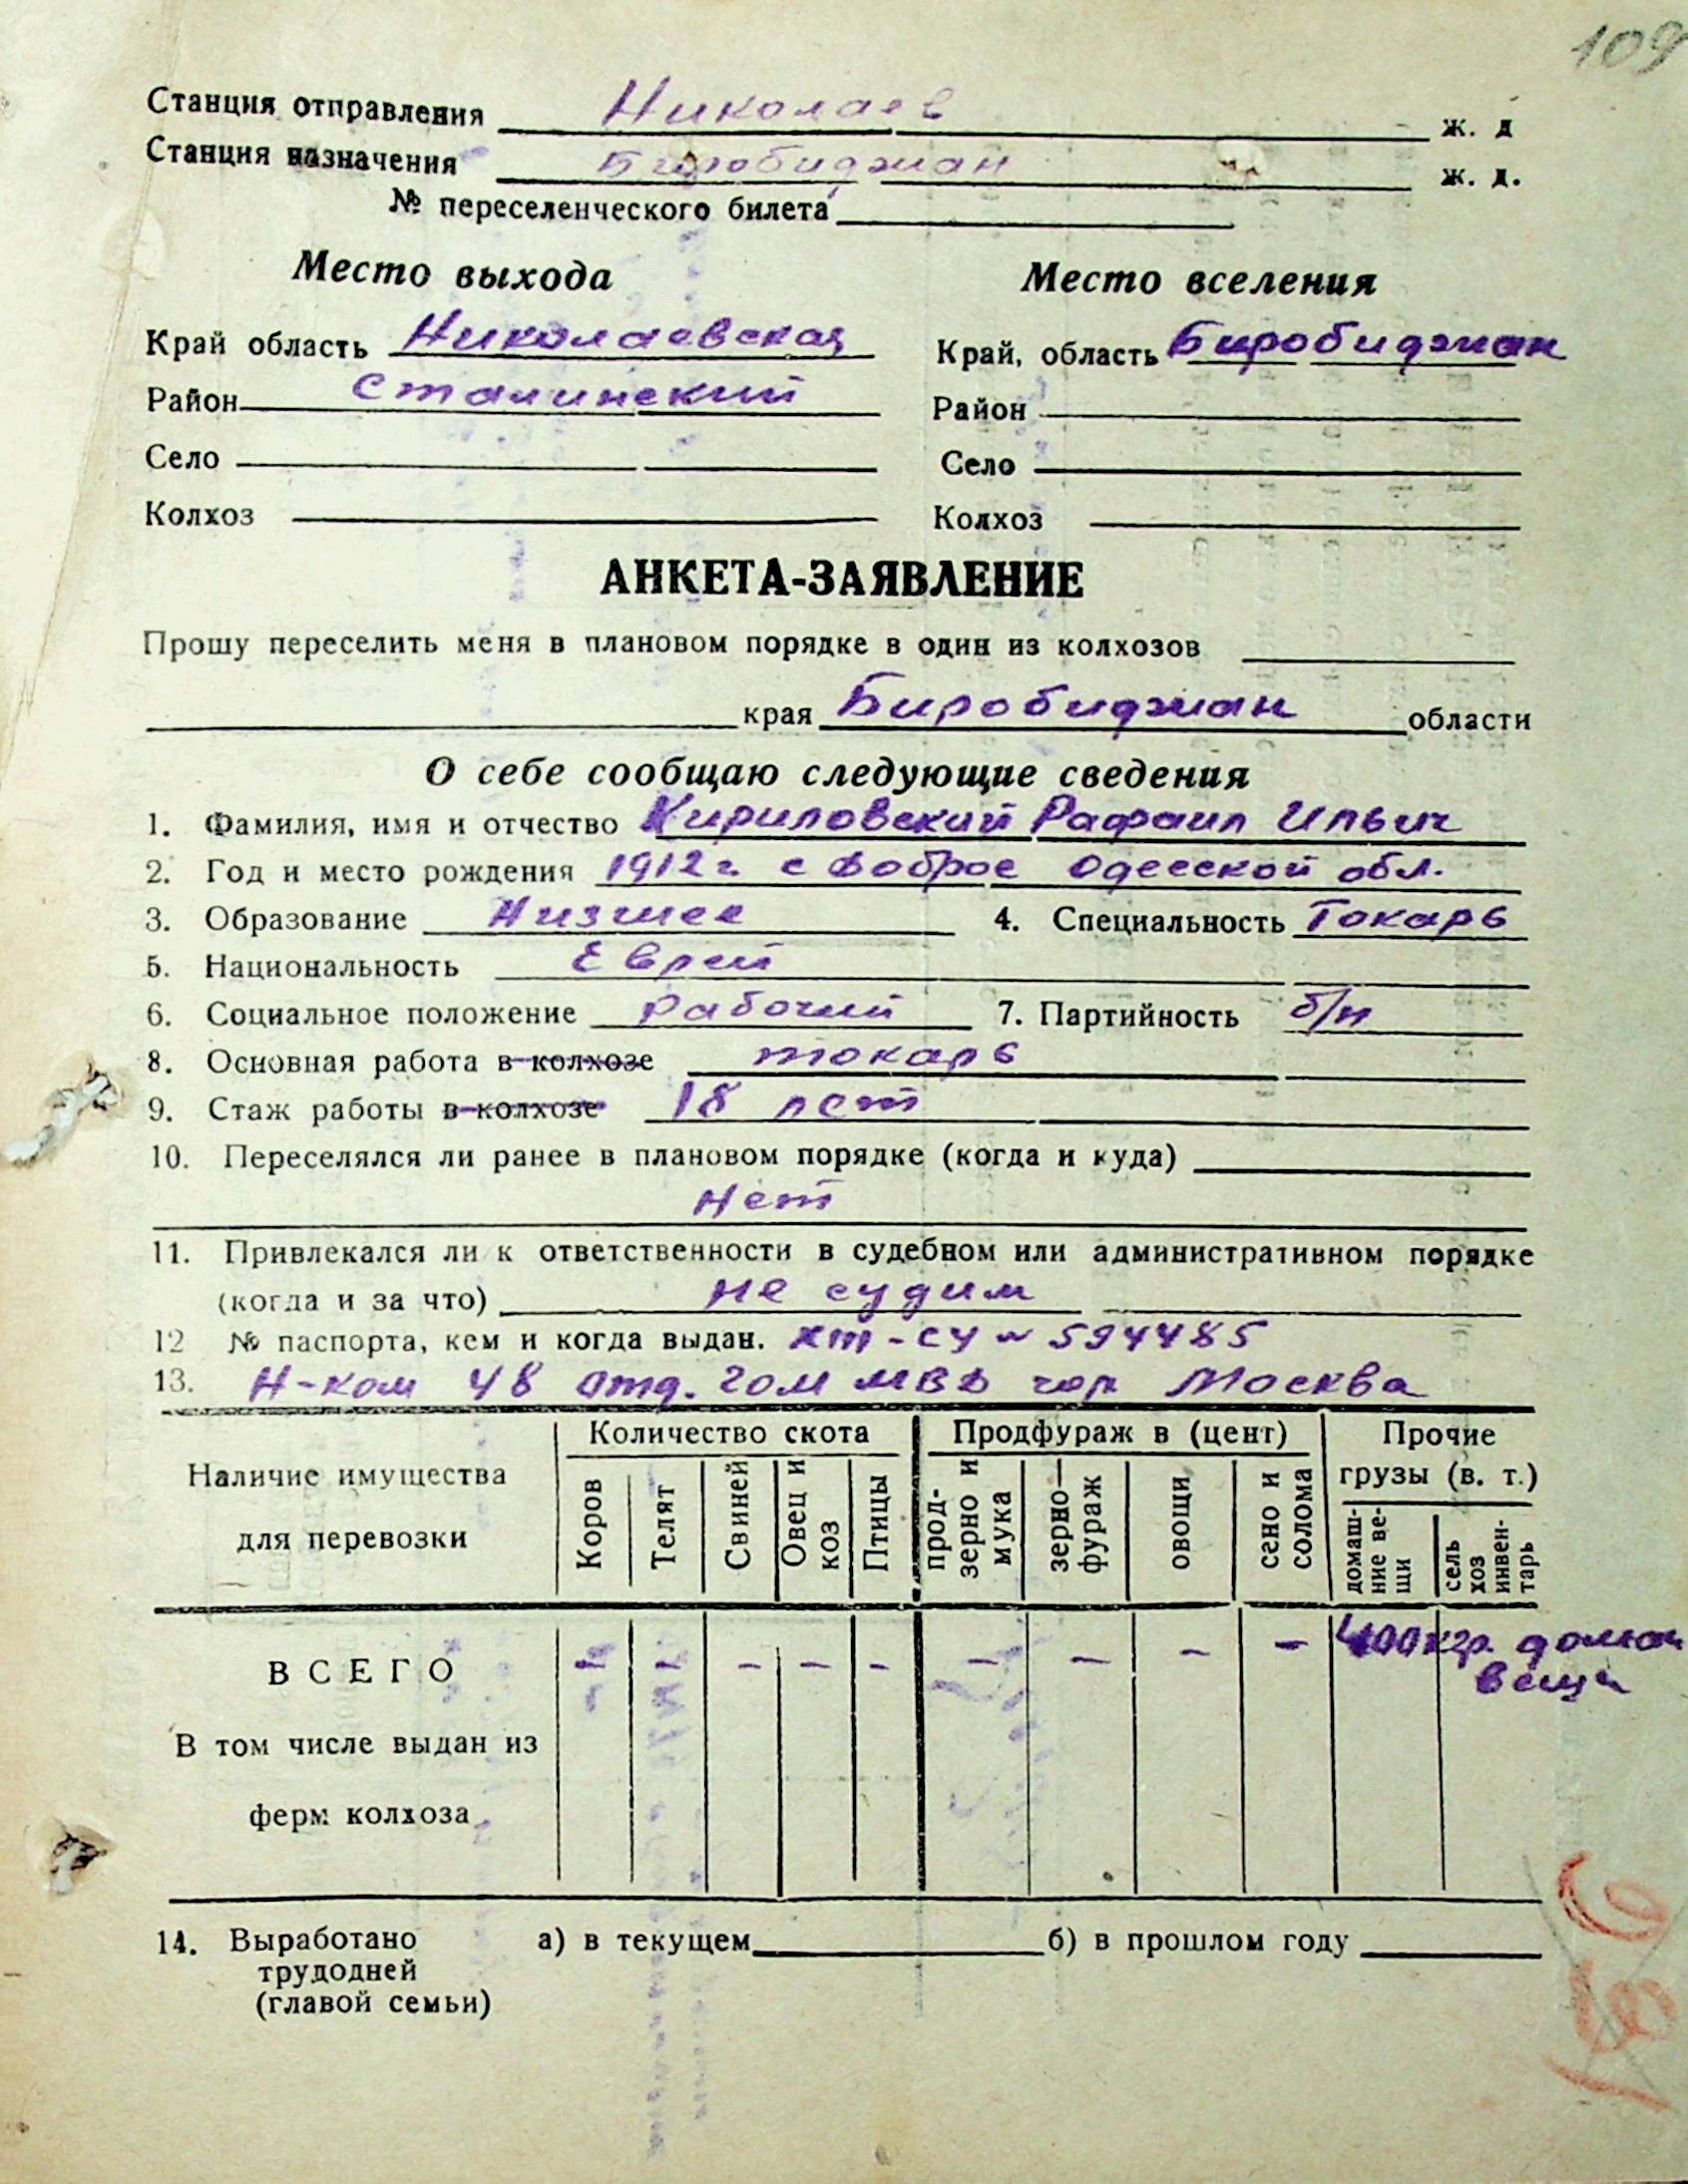 109
Станция отправления Николаев ж. д
Станция назначения Биробиджан ж. д.
№ переселенческого билета
Место выхода Место вселения
Край область Николаевская Край, область Биробиджан
Район Сталинский Район
Село Село
Колхоз Колхоз
АНКЕТА-ЗАЯВЛЕНИЕ
Прошу переселить меня в плановом порядке в один из колхозов
края Биробиджан области
О себе сообщаю следующие сведения
1. Фамилия, имя и отчество Кириловский Рафаил Ильич
2. Год и место рождения 1912 г. с Доброе Одесской обл.
3. Образование Низшее 4. Специальность Токарь
5. Национальность Еврей
6. Социальное положение рабочий 7. Партийность б/п
8. Основная работа в колхозе токарь
9. Стаж работы в колхозе 18 лет
10. Переселялся ли ранее в плановом порядке (когда и куда)
Нет
11. Привлекался ли к ответственности в судебном или административном порядке
(когда и за что) не судим
12 № паспорта, кем и когда выдан. -СУ № 594485
13. Н-ком 48 отд. гом МВД гор Москва
Наличие имущества для перевозки Количество скота Продфураж в (цент) Прочие грузы (в. т.)
Коров Телят Свиней Овец и коз Птицы прод-зерно и мука зерно—фураж овощи сено и солома домаш-ние ве-щи сель хоз инвен-тарь
ВСЕГО - - - - - - - - - 400 кгр. домаш
вещи
В том числе выдан из
ферм колхоза
14. Выработано а) в текущем б) в прошлом году
трудодней
(главой семьи)